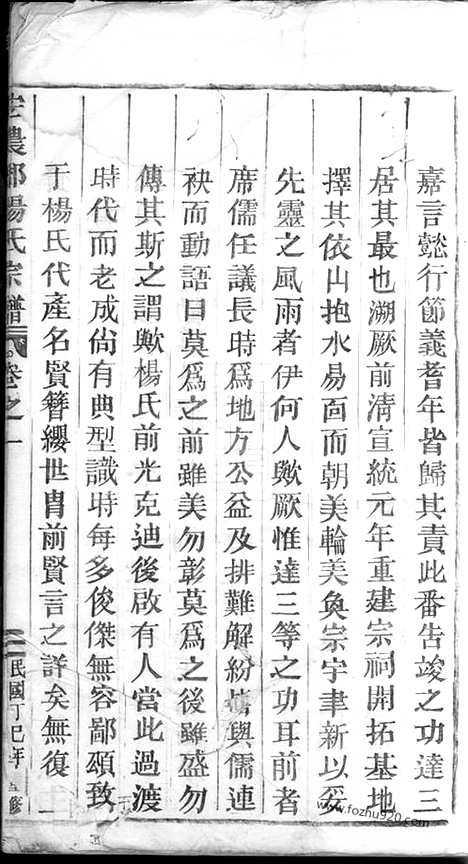 嘉言懿行節義耆年皆歸其責此番告竣之功達三
居其最也溯厥前清宣統元年重建宗祠開拓基地
擇其依山抱水易面而朝美輪美奐宗宇聿新以妥
先靈之風雨者伊何人歟厥惟達三等之功耳前者
席儒任議長時爲地方公益及排難解紛情與儒連
袂而動語曰莫爲之前雖美勿彰莫爲之後雖盛勿
傳其斯之謂歟楊氏前光克迪後啟有人當此過渡
時代而老成尙有典型識時每多俊傑無容鄙頌致
于楊氏代產名賢簪纓世胄前賢言之詳矣無復
農郡楊氏宗譜 卷之一 民國丁巳年 修
www.fozhu920.com